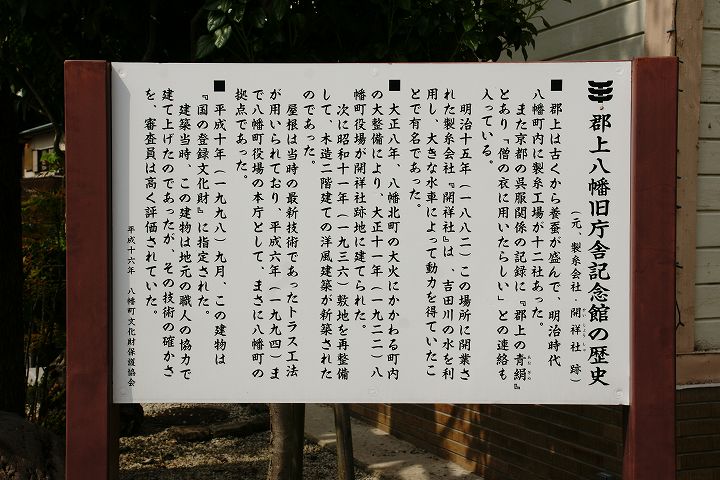 郡上八幡旧庁舎記念館の歴史
(元、製糸会社・開祥社 跡)
かいしょうしゃ
■ 郡上は古くから養蚕が盛んで、明治時代
八幡町内に製糸工場が十二社あった。
また京都の呉服関係の記録に『郡上の青絹』
とあり「僧の衣に用いたらしい」との連絡も
入っている。
明治十五年(一八八二)この場所に開業さ
れた製糸会社『開祥社』は、吉田川の水を利
用し、大きな水車によって動力を得ていたこ
とで有名であった。
■ 大正八年、八幡北町の大火にかかわる町内
の大整備により、大正十一年(一九二二)八
幡町役場が開祥社跡地に建てられた。
次に昭和十一年(一九三六)敷地を再整備
して、木造二階建ての洋風建築が新築された
のであった。
屋根は当時の最新技術であったトラス工法
が用いられており、平成六年(一九九四)ま
で八幡町役場の本庁として、まさに八幡町の
拠点であった。
■ 平成十年(一九九八)九月、この建物は
『国の登録文化財』に指定された。
建築当時、この建物は地元の職人の協力で
建て上げたのであったが、その技術の確かさ
を、審査員は高く評価されていた。
平成十六年 八幡町文化財保護協会